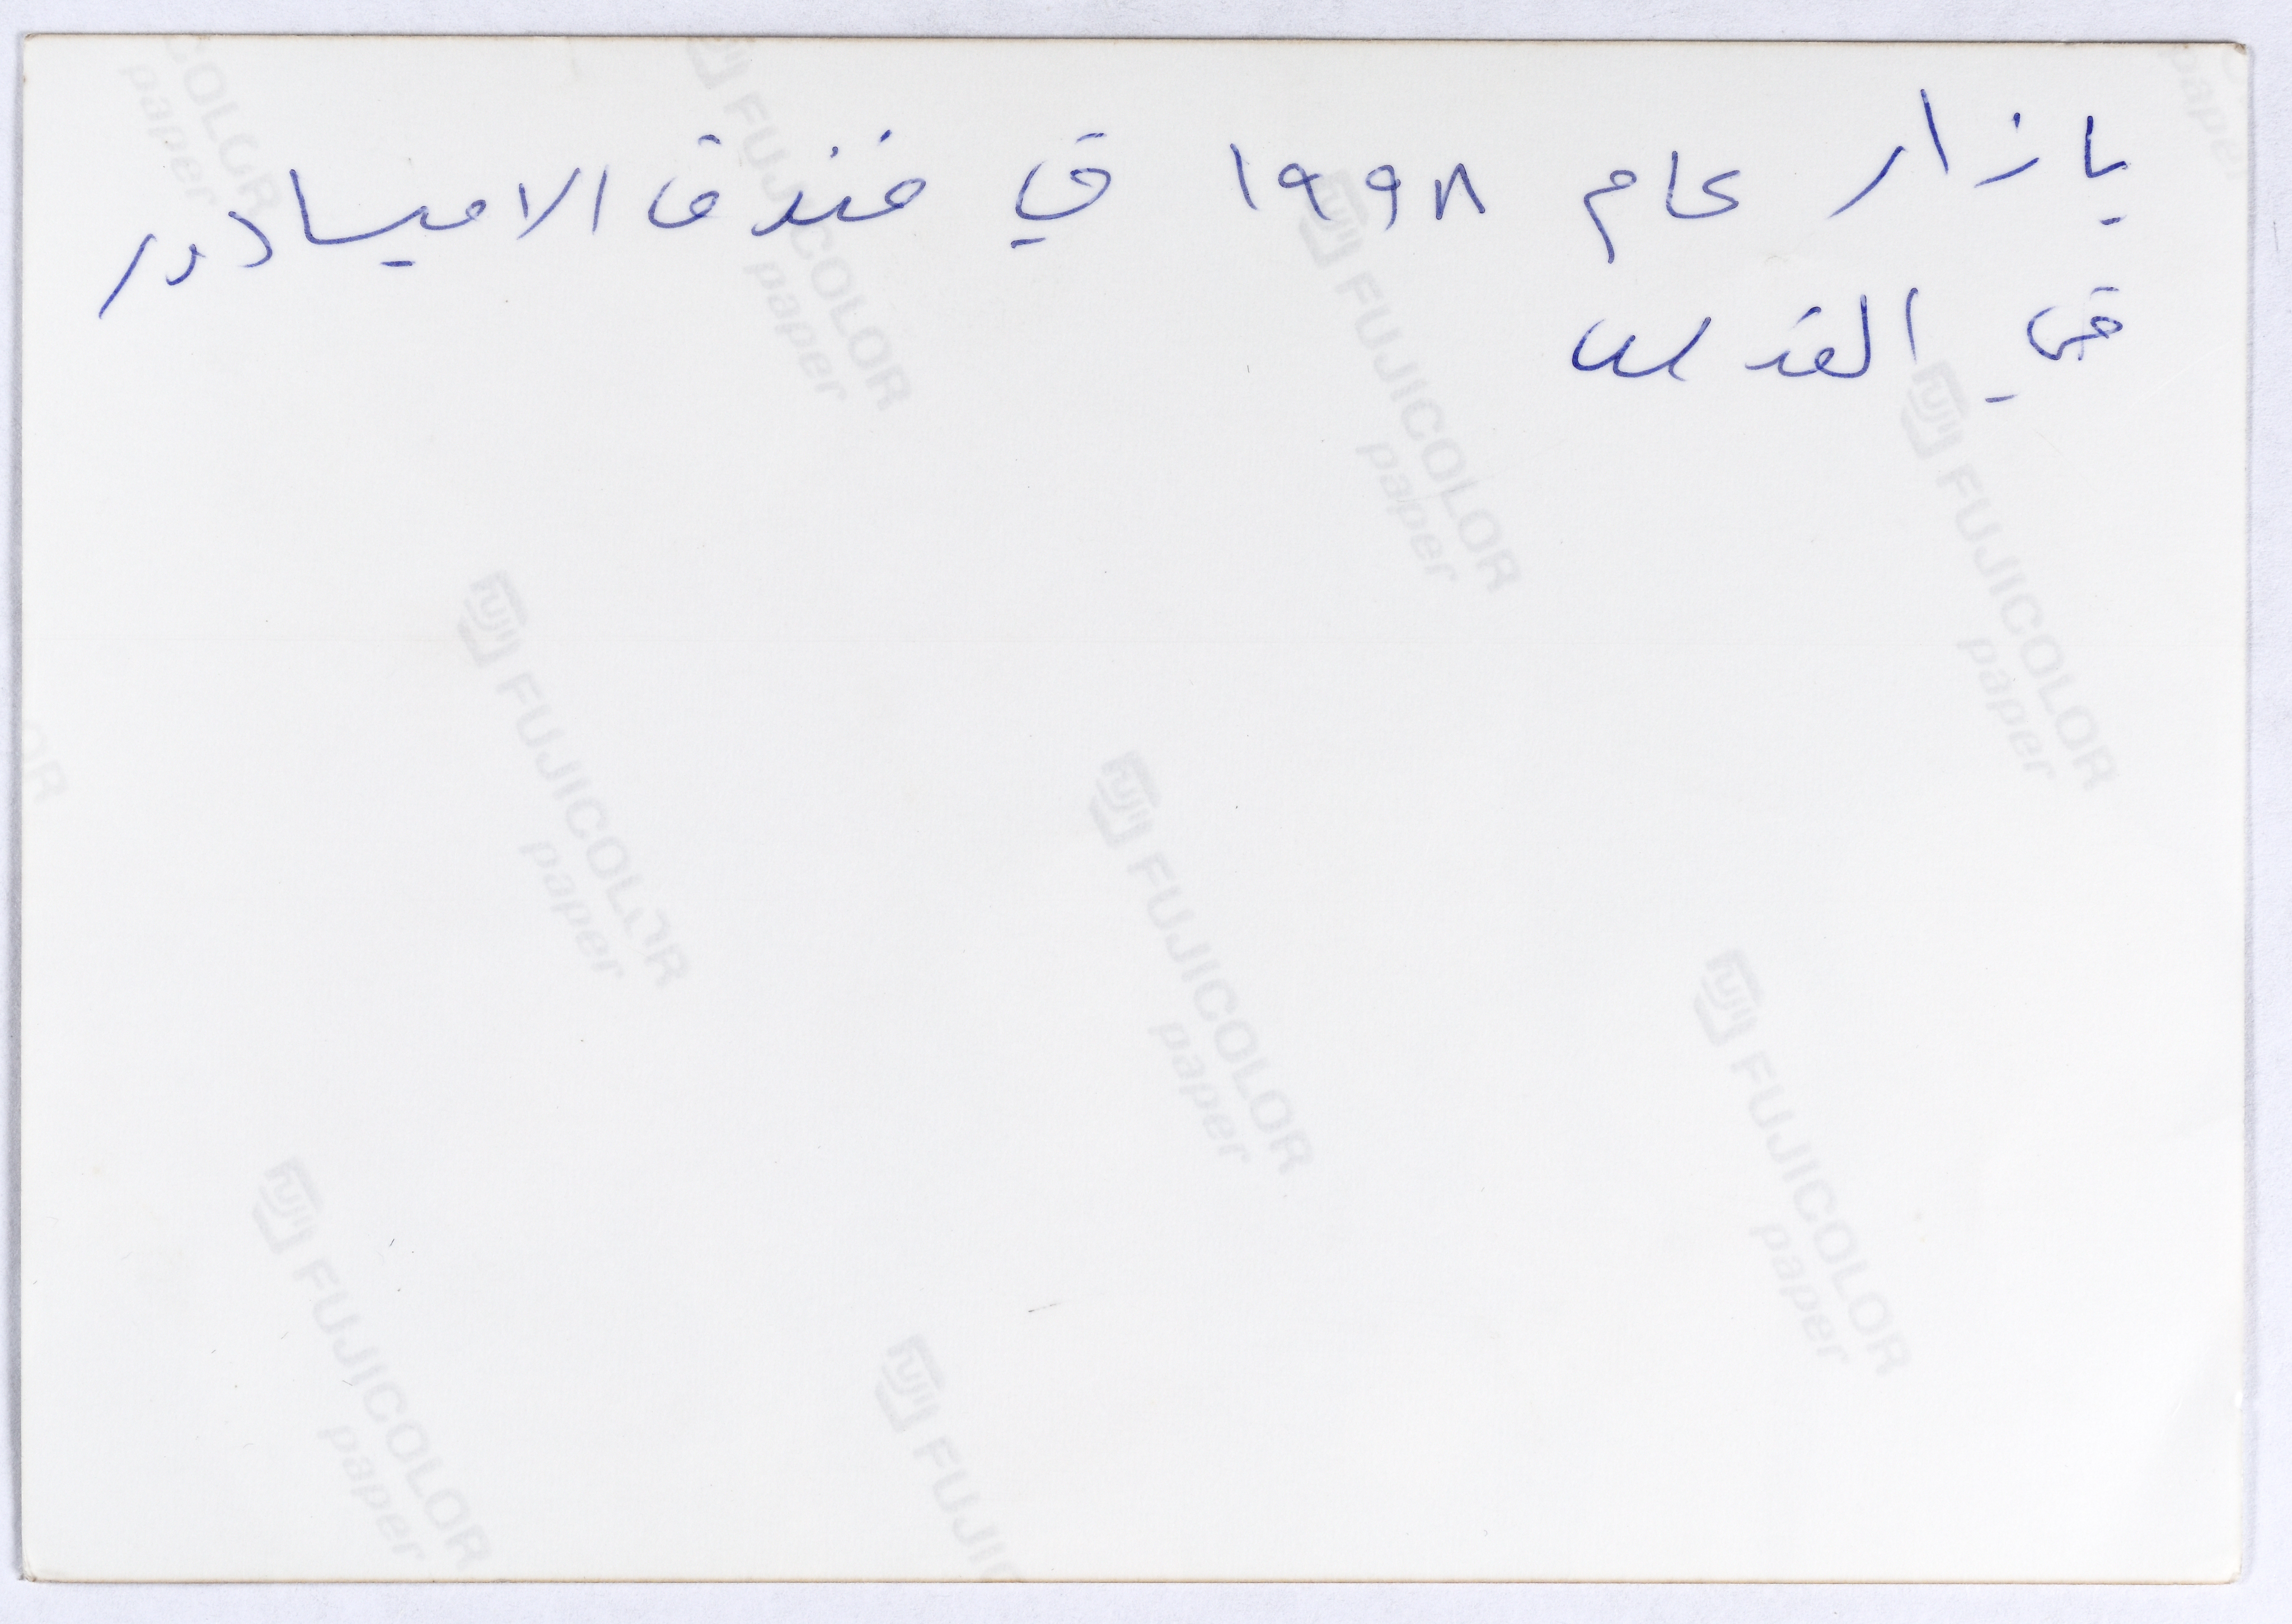 بازار عام ١٩٩٨ في فندق الامبسادور
في القدس
FUJICOLOR paper
FUJICOLOR paper
FUJICOLOR paper
FUJICOLOR paper
FUJICOLOR paper
FUJICOLOR paper
FUJICOLOR paper
FUJICOLOR paper